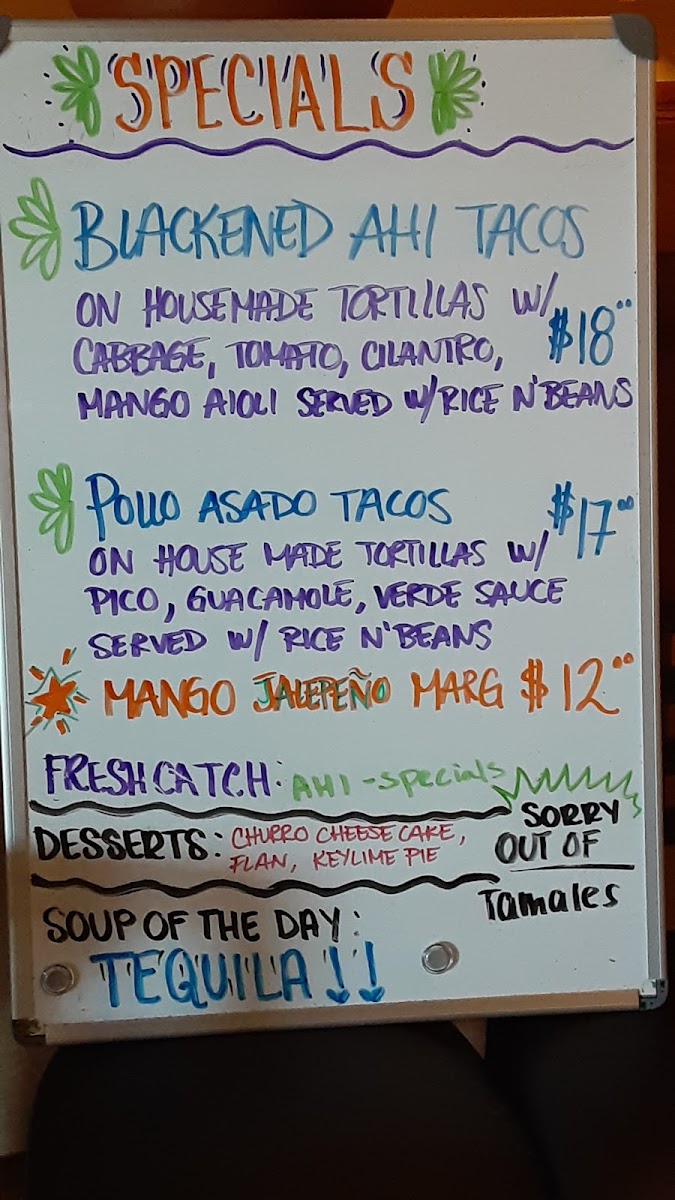 SPECIALS
BLACKENED AHI TACOS
ON HOUSEMADE TORTILLAS W/
CABBAGE, TOMATO, CILANTRO, $18.00
MANGO AIOLI SERVED W/RICE N'BEANS
POLLO ASADO TACOS $17.00
ON HOUSE MADE TORTILLAS W/
PICO, GUACAMOLE, VERDE SAUCE
SERVED W/ RICE N'BEANS
MANGO JALEPEÑO MARG $12.00
FRESH CATCH: AHI - SPECIALS
DESSERTS: CHURRO CHEESE CAKE,
FLAN, KEYLIME PIE
SORRY
OUT OF
Tamales
SOUP OF THE DAY:
TEQUILA!!